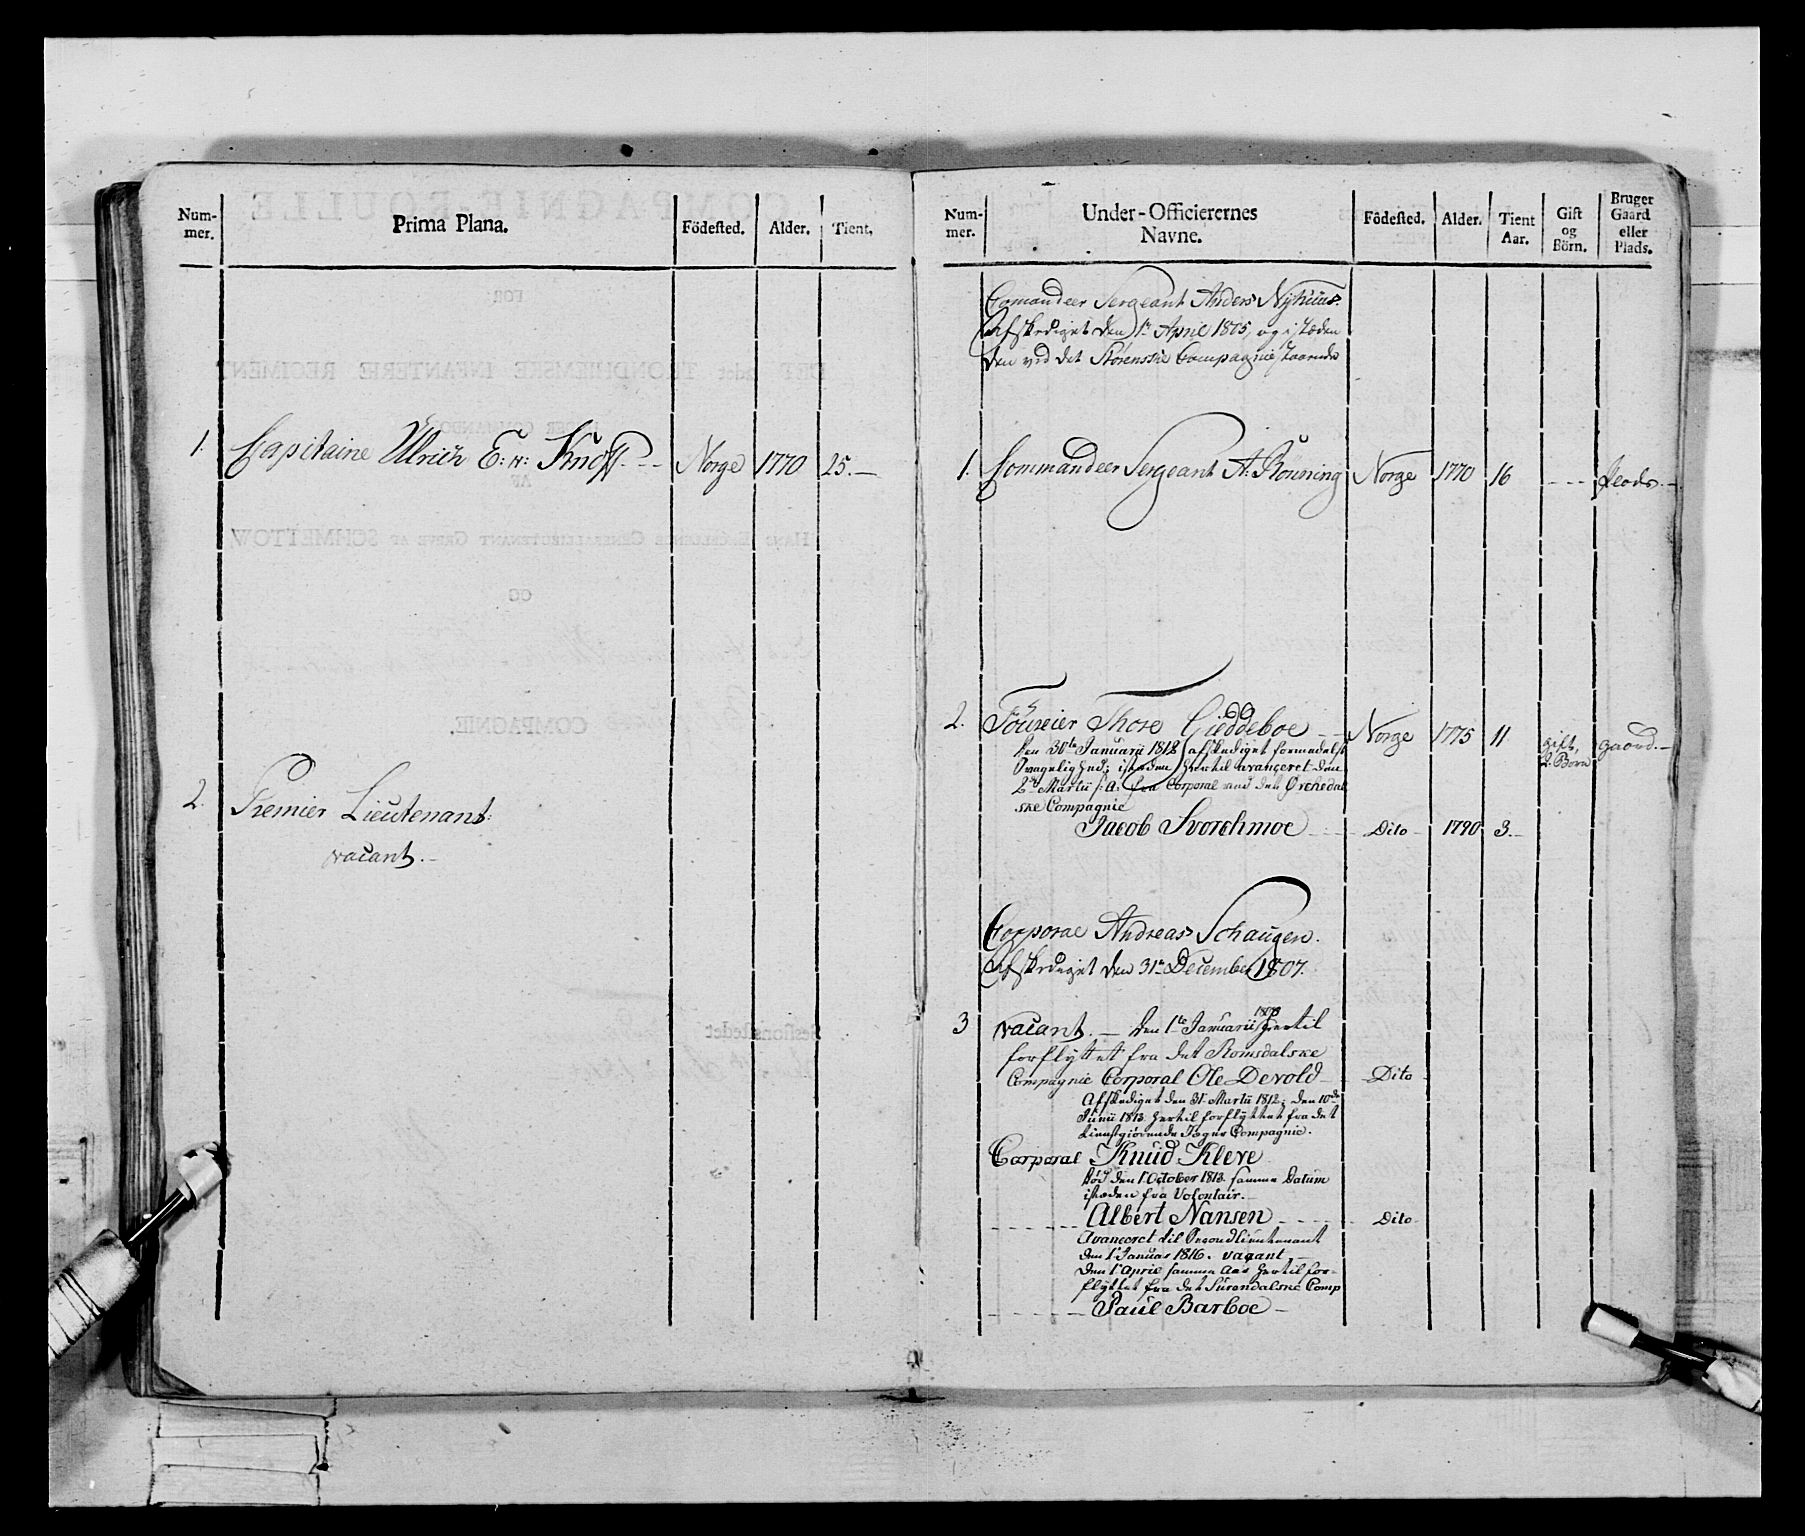 Num-
mer.
Prima Plana.
Födested.
Alder.
Tient.
1. Capitaine Ulrich E: H: Knoff. Norge 1770 25.
2. Premier Lieutenant:
vacant.
Num-
mer.
Under-Officierernes
Navne.
Födested.
Alder.
Tient
Aar.
Gift
og
Börn.
Bruger
Gaard
eller
Plads.
Comandeer Sergeant Anders Nyhuus.
Afskediget den 1te April 1805, og i stæden
den ved det Störenske Compagnie staaende
1. Commandeer Sergeant A: Rönning Norge 1770 16 --- Plads.
2. Foureier Thore Gieddeboe Norge 1775 11 gift, 2. Børn gaard.
den 30te Januarii 1812 afskediget formedelst
Svagelighed; isteden hertil avanceret den
2den Martii s: A: fra Corporal ved det Ørchedal
ske Compagnie
Jacob Svorchmoe Dito 1790 3.
Corporal Andreas Schaugen.
Afskediget den 31te December 1807.
3 vacant. — den 1te Januarii 1808 hertil
forflyttet fra det Romsdalske
Compagnie Corporal Ole Devold Dito
Afskediget den 31 Martii 1812; den 10de
Junii 1813 hertil forflyttet fra det
tienstgiørende Jæger Compagnie.
Corporal Knud Kleve
Död den 1 October 1813. samme Datum
isteden fra Volontair.
Albert Nansen Dito
Avanceret til Secondlieutenant
den 1 Januar 1816. vacant
Den 1 April samme Aar hertil for-
flyttet fra det Surendalske Comp
Paul Barboe